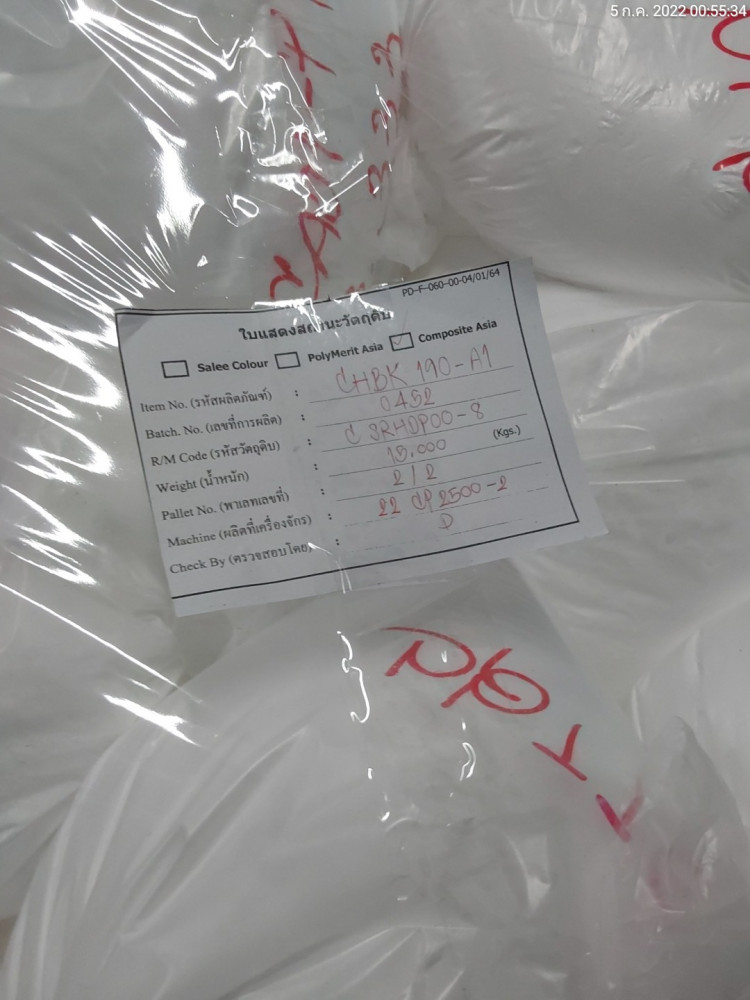 5 ก.ค. 2022 00:55:34
3 3 3
PD-F-060-00-04/01/64
ใบแสดงสถานะวัตถุดิบ
Salee Colour PolyMerit Asia Composite Asia
Item No. (รหัสผลิตภัณฑ์) : CHBK 190-A1
Batch. No. (เลขที่การผลิต) : 0452
R/M Code (รหัสวัตถุดิบ) : CSRHDP00-8
Weight (น้ำหนัก) : 15.000 (Kgs.)
Pallet No. (พาเลทเลขที่) : 2/2
Machine (ผลิตที่เครื่องจักร) : 22 CP2500-2
Check By (ตรวจสอบโดย) :